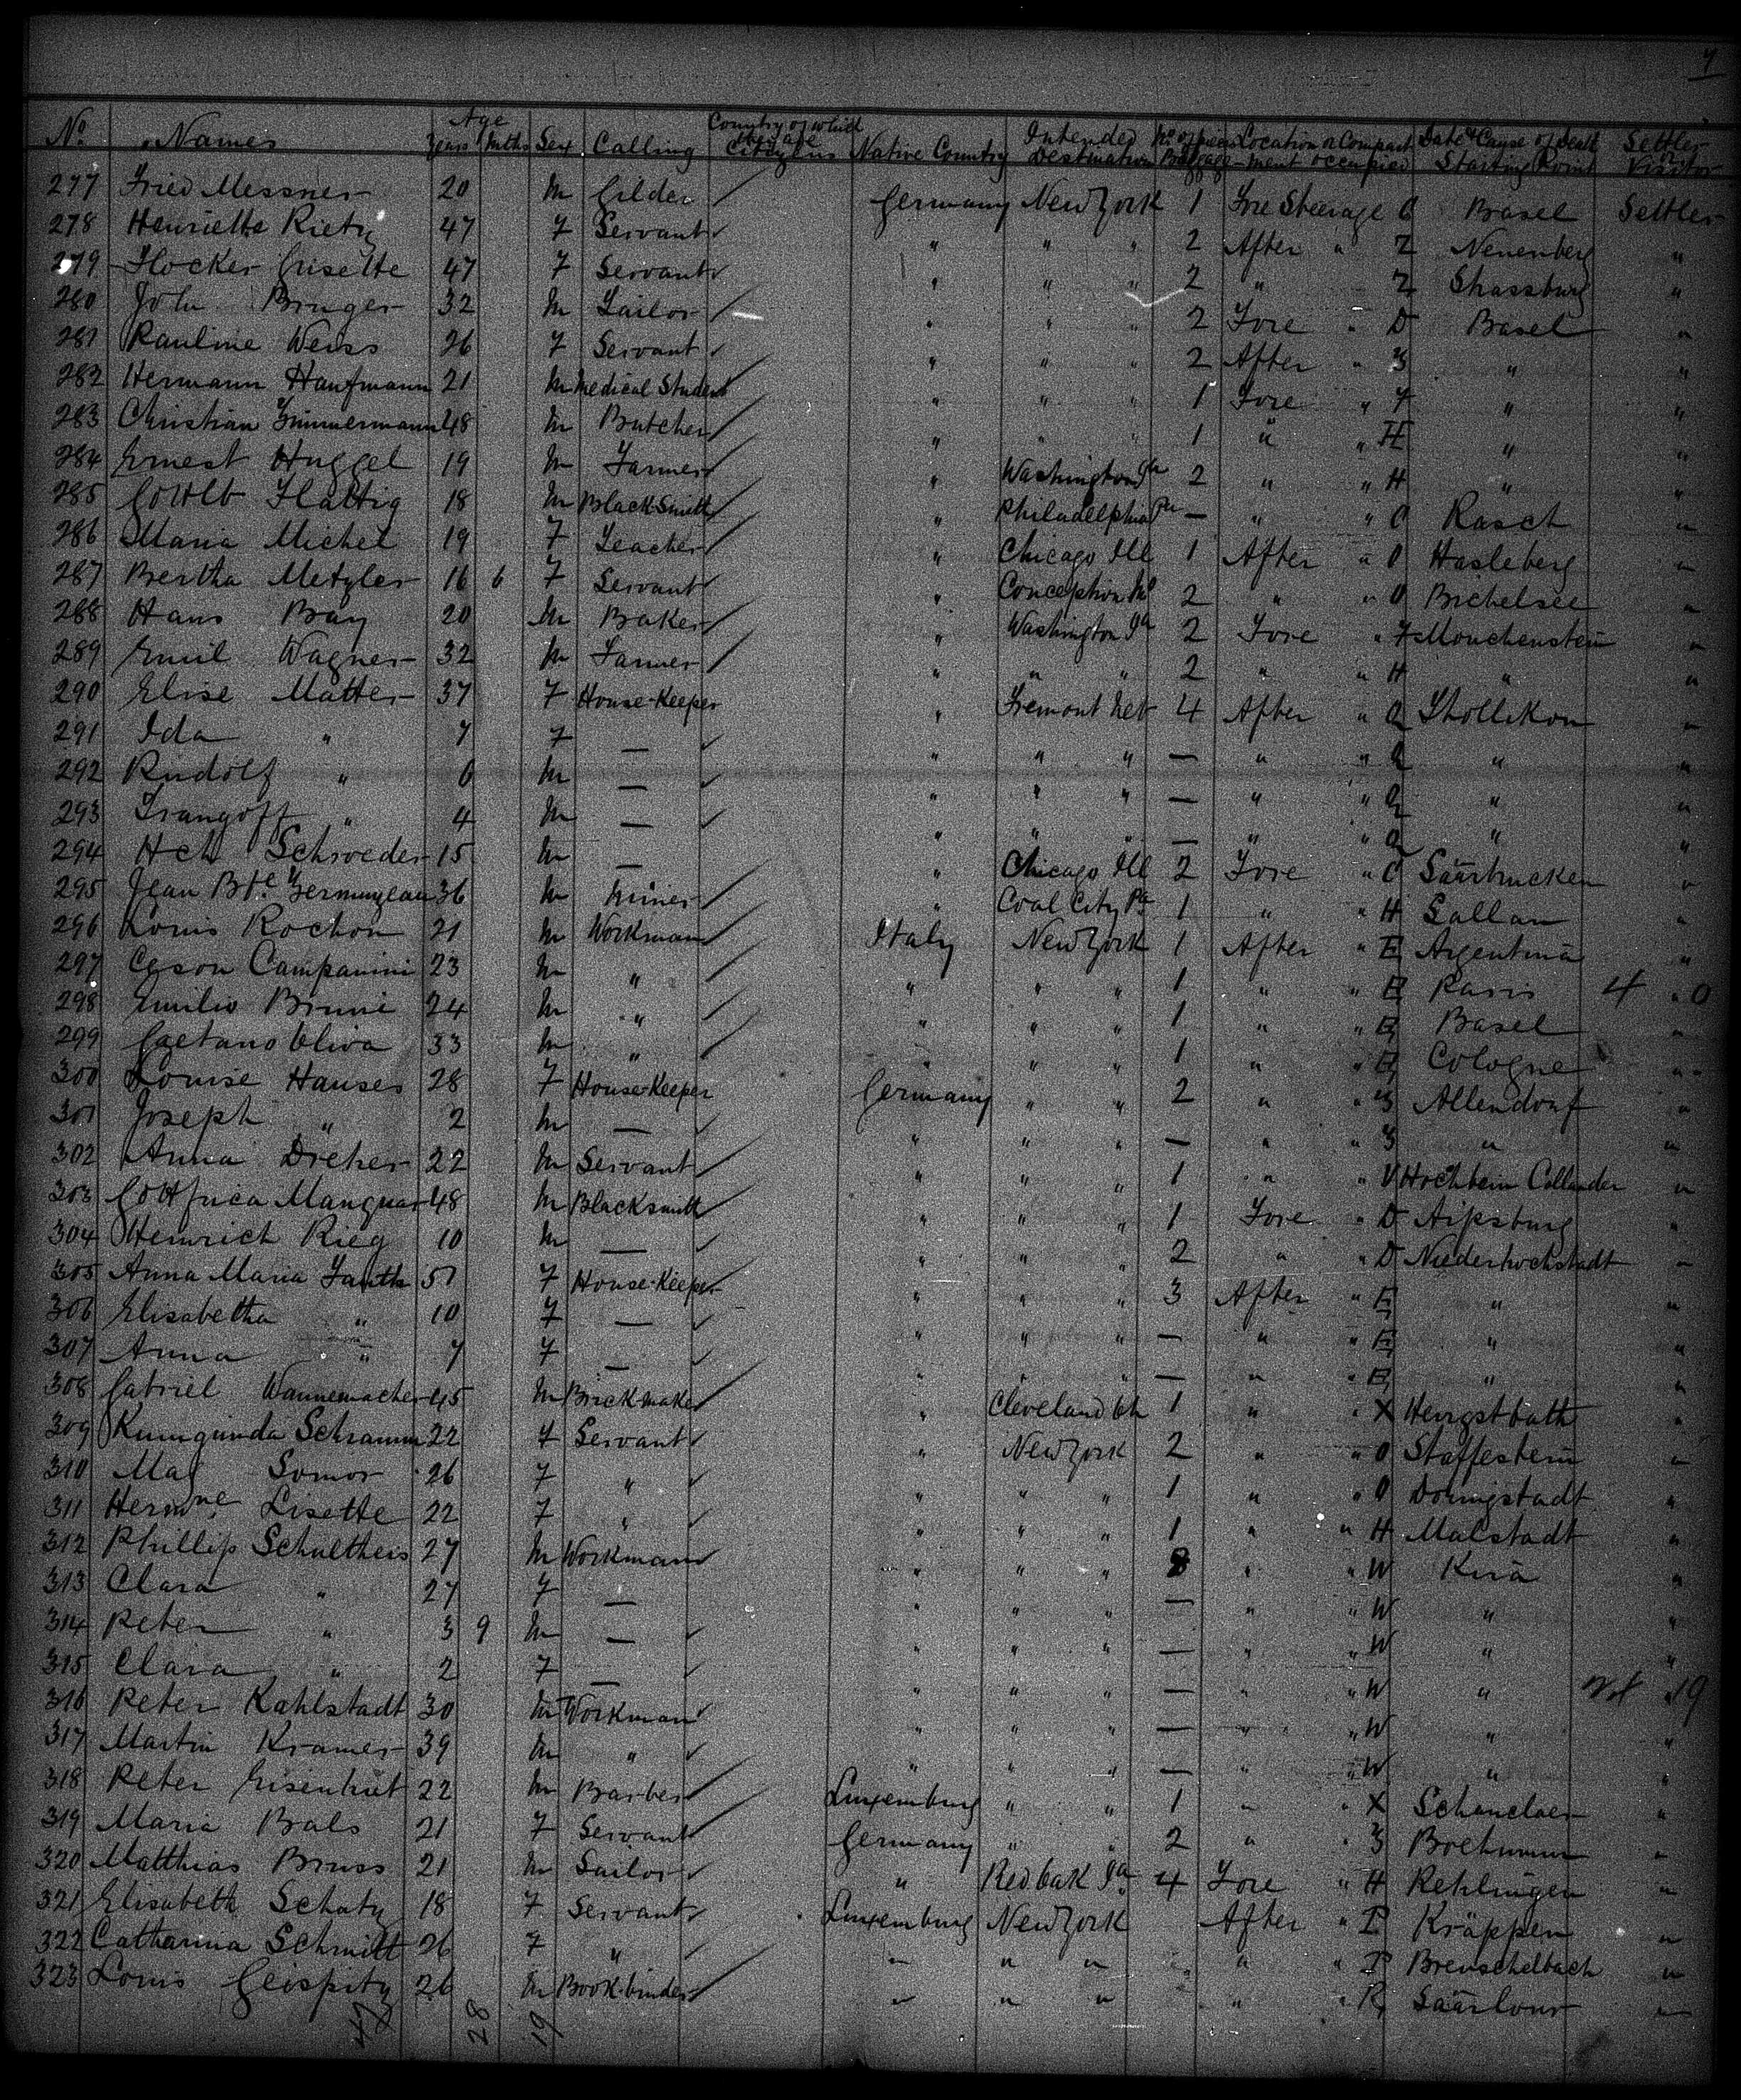 7
No Names Age Years Mths Sex Calling Country of which they are Citizens Native Country Intended Destination No of pieces Baggage Location or Compartment occupied Date & Cause of Death Starting Point Settler or Visitor
277 Fried Messner 20 M Gilder Germany New York 1 Fore Steerage C Basel Settler
278 Henriette Rietz 47 F Servant " " " 2 After " Z Neuenberg "
279 Hocker Lisette 47 F Servant " " " 2 " Z Strassburg "
280 John Bruger 32 M Tailor " " " 2 Fore " D Basel "
281 Pauline Weiss 26 F Servant " " " 2 After " Z " "
282 Hermann Haufmann 21 M Medical Student " " " 1 Fore " F " "
283 Christian Zimmermann 48 M Butcher " " " 1 " " H " "
284 Ernest Huggel 19 M Farmer " Washington Ia 2 " " H " "
285 Gottlb Flattig 18 M BlackSmith " Philadelphia Pa — " " C "
286 Maria Michel 19 F Teacher " Chicago Ill 1 After " O Hasleberg "
287 Bertha Metzler 16 6 F Servant " Conception Mo 2 " " O Bichelsee "
288 Hans Bay 20 M Baker " Washington Ia 2 Fore " F Monchenstein "
289 Emil Wagner 32 M Farmer " " " 2 " " H " "
290 Elise Matter 37 F House-Keeper " Fremont Neb 4 After " Q "
291 Ida " 7 F — " " " — " " Q " "
292 Rudolf " 6 M — " " " — " " Q " "
293 " 4 M — " " " — " " Q " "
294 Hch Schroeder 15 M — " Chicago Ill 2 Fore " C Saarbrucken "
295 Jean Bte 36 M Miner " Coal City Pa 1 " " H Lallan "
296 Louis Rochon 21 M Workman Italy New York 1 After " E Argentina "
297 Campanini 23 M " " " " 1 " " E Paris 4 " 0
298 Emilio Brunie 24 M " " " " 1 " " E Basel "
299 Gaetano Oliva 33 M " " " " 1 " " E Cologne "
300 Louise Hauser 28 F House-Keeper Germany " " 2 " " Z Allendorf "
301 Joseph " 2 M — " " " — " " Z " "
302 Anna Dreher 22 M Servant " " " 1 " " V "
303 48 M Blacksmith " " " 1 Fore " D "
304 Heinrich Rieg 10 M — " " " 2 " " D Niederhochstadt "
305 Anna Maria 51 F House-Keeper " " " 3 After " E " "
306 Elisabetha " 10 F — " " " — " " E " "
307 Anna " 7 F — " " " — " " E " "
308 Gabriel Wannemacher 45 M Brickmaker " Cleveland Oh 1 " " X "
309 Kunigunda Schramm 22 F Servant " New York 2 " " O Staffestein "
310 Mag Somor 26 F " " " " 1 " " O Doringstadt "
311 Hermne Lisette 22 F " " " " 1 " " H Malstadt "
312 Phillip Schultheis 27 M Workman " " " 8 " " W "
313 Clara " 27 F — " " " — " " W " "
314 Peter " 3 9 M — " " " — " " W " "
315 Clara " 2 F — " " " — " " W " 19
316 Peter Kahlstadt 30 M Workman " " " — " " W " "
317 Martin Kramer 39 M " " " " — " " W " "
318 Peter Eisenhut 22 M Barber Luxemburg " " 1 " " X "
319 Maria Bals 21 F Servant Germany " " 2 " " Z "
320 Matthias Bruss 21 M Sailor " Red Oak Ia 4 Fore " H Rehlingen "
321 Elisabeth Schatz 18 F Servant Luxemburg New York After " P Kräppen "
322 Catharina Schmitt 26 F " " " " " " P Breuschelbach "
323 Louis Geispitz 26 M Book-binder " " " " " R Säärlour "
47 28 19